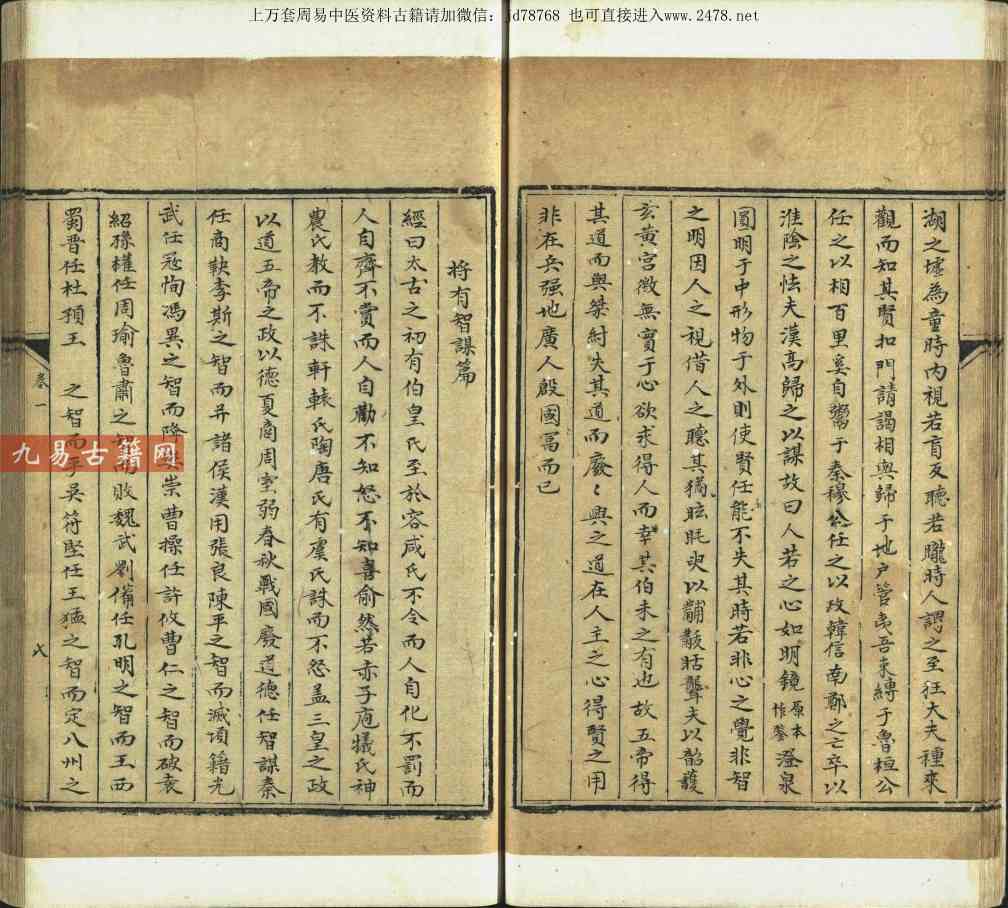 上万套周易中医资料古籍请加微信：jd78768 也可直接进入www.2478.net
湖之墟為童時內視若盲反聽若矓時人謂之至狂大夫種來
觀而知其賢扣門請謁相與歸于地户管夷吾束縛于魯桓公
任之以相百里奚自鬻于秦穆公任之以政韓信南鄭之亡卒以
淮陰之怯夫漢高歸之以謀故曰人若之心如明鏡原本作鍳澄泉
圓明于中形物于外則使賢任能不失其時若非心之覺非智
之明因人之視借人之聽其猶眩眊以黼黻聒聾夫以韶頀
玄黃宮徵無實于心欲求得人而幸其伯未之有也故五帝得
其道而興桀紂失其道而廢〻興之道在人主之心得賢之用
非在兵强地廣人殷國冨而已
將有智謀篇
經曰太古之初有伯皇氏至於容咸氏不令而人自化不罰而
人自齊不賞而人自勸不知怒不知喜俞然若赤子庖犧氏神
農氏教而不誅軒轅氏陶唐氏有虞氏誅而不怨盖三皇之政
以道五帝之政以德夏商周室弱春秋戰國廢道德任智謀秦
任商鞅李斯之智而并諸侯漢用張良陳平之智而滅項籍光
武任冦恂馮異之智而降崇曹操任許攸曹仁之智而破袁
紹豫權任周瑜魯肅之而敗魏武劉備任孔明之智而王西
蜀晋任杜預王 之智而平吳苻堅任王猛之智而定八州之
卷一
八
九易古籍网